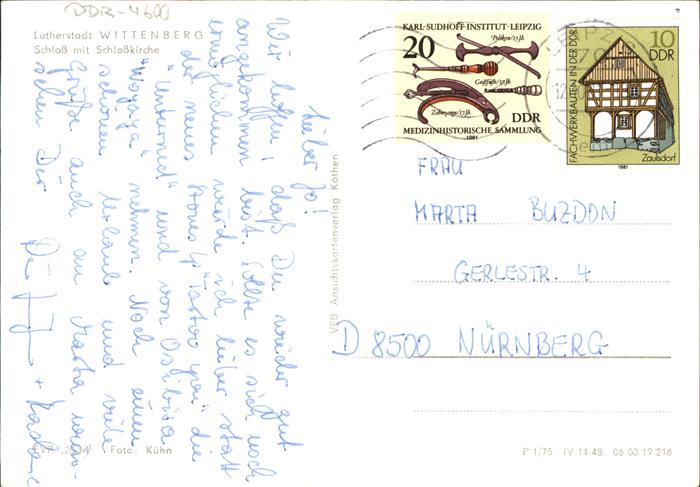 DDR-4600
Lutherstadt WITTENBERG
Schloß mit Schloßkirche
Lieber Jo!
Wir hoffen, daß Du wieder gut
angekommen bist. Sollte es sich noch
ermöglichen würde ich lieber statt
der neuen Stones LP "Tattoo you" die
"Unturned" und von Osibisa
"Wojaya" nehmen. Noch einen
schönen Urlaub und viele
Grüße auch an Marta
Dir
VEB Ansichtskartenverlag Köthen
Foto: Kühn
KARL-SUDHOFF INSTITUT-LEIPZIG
20
Pelikan/17.Jh.
Zahnzange/17.Jh.
DDR
MEDIZINHISTORISCHE SAMMLUNG
1981
FACHWERKBAUTEN IN DER DDR
10
DDR
Zaulsdorf
1981
FRAU
MARTA BUZDON
GERLESTR. 4
D 8500 NÜRNBERG
P 1/75 IV-14-48 06 03 19 216